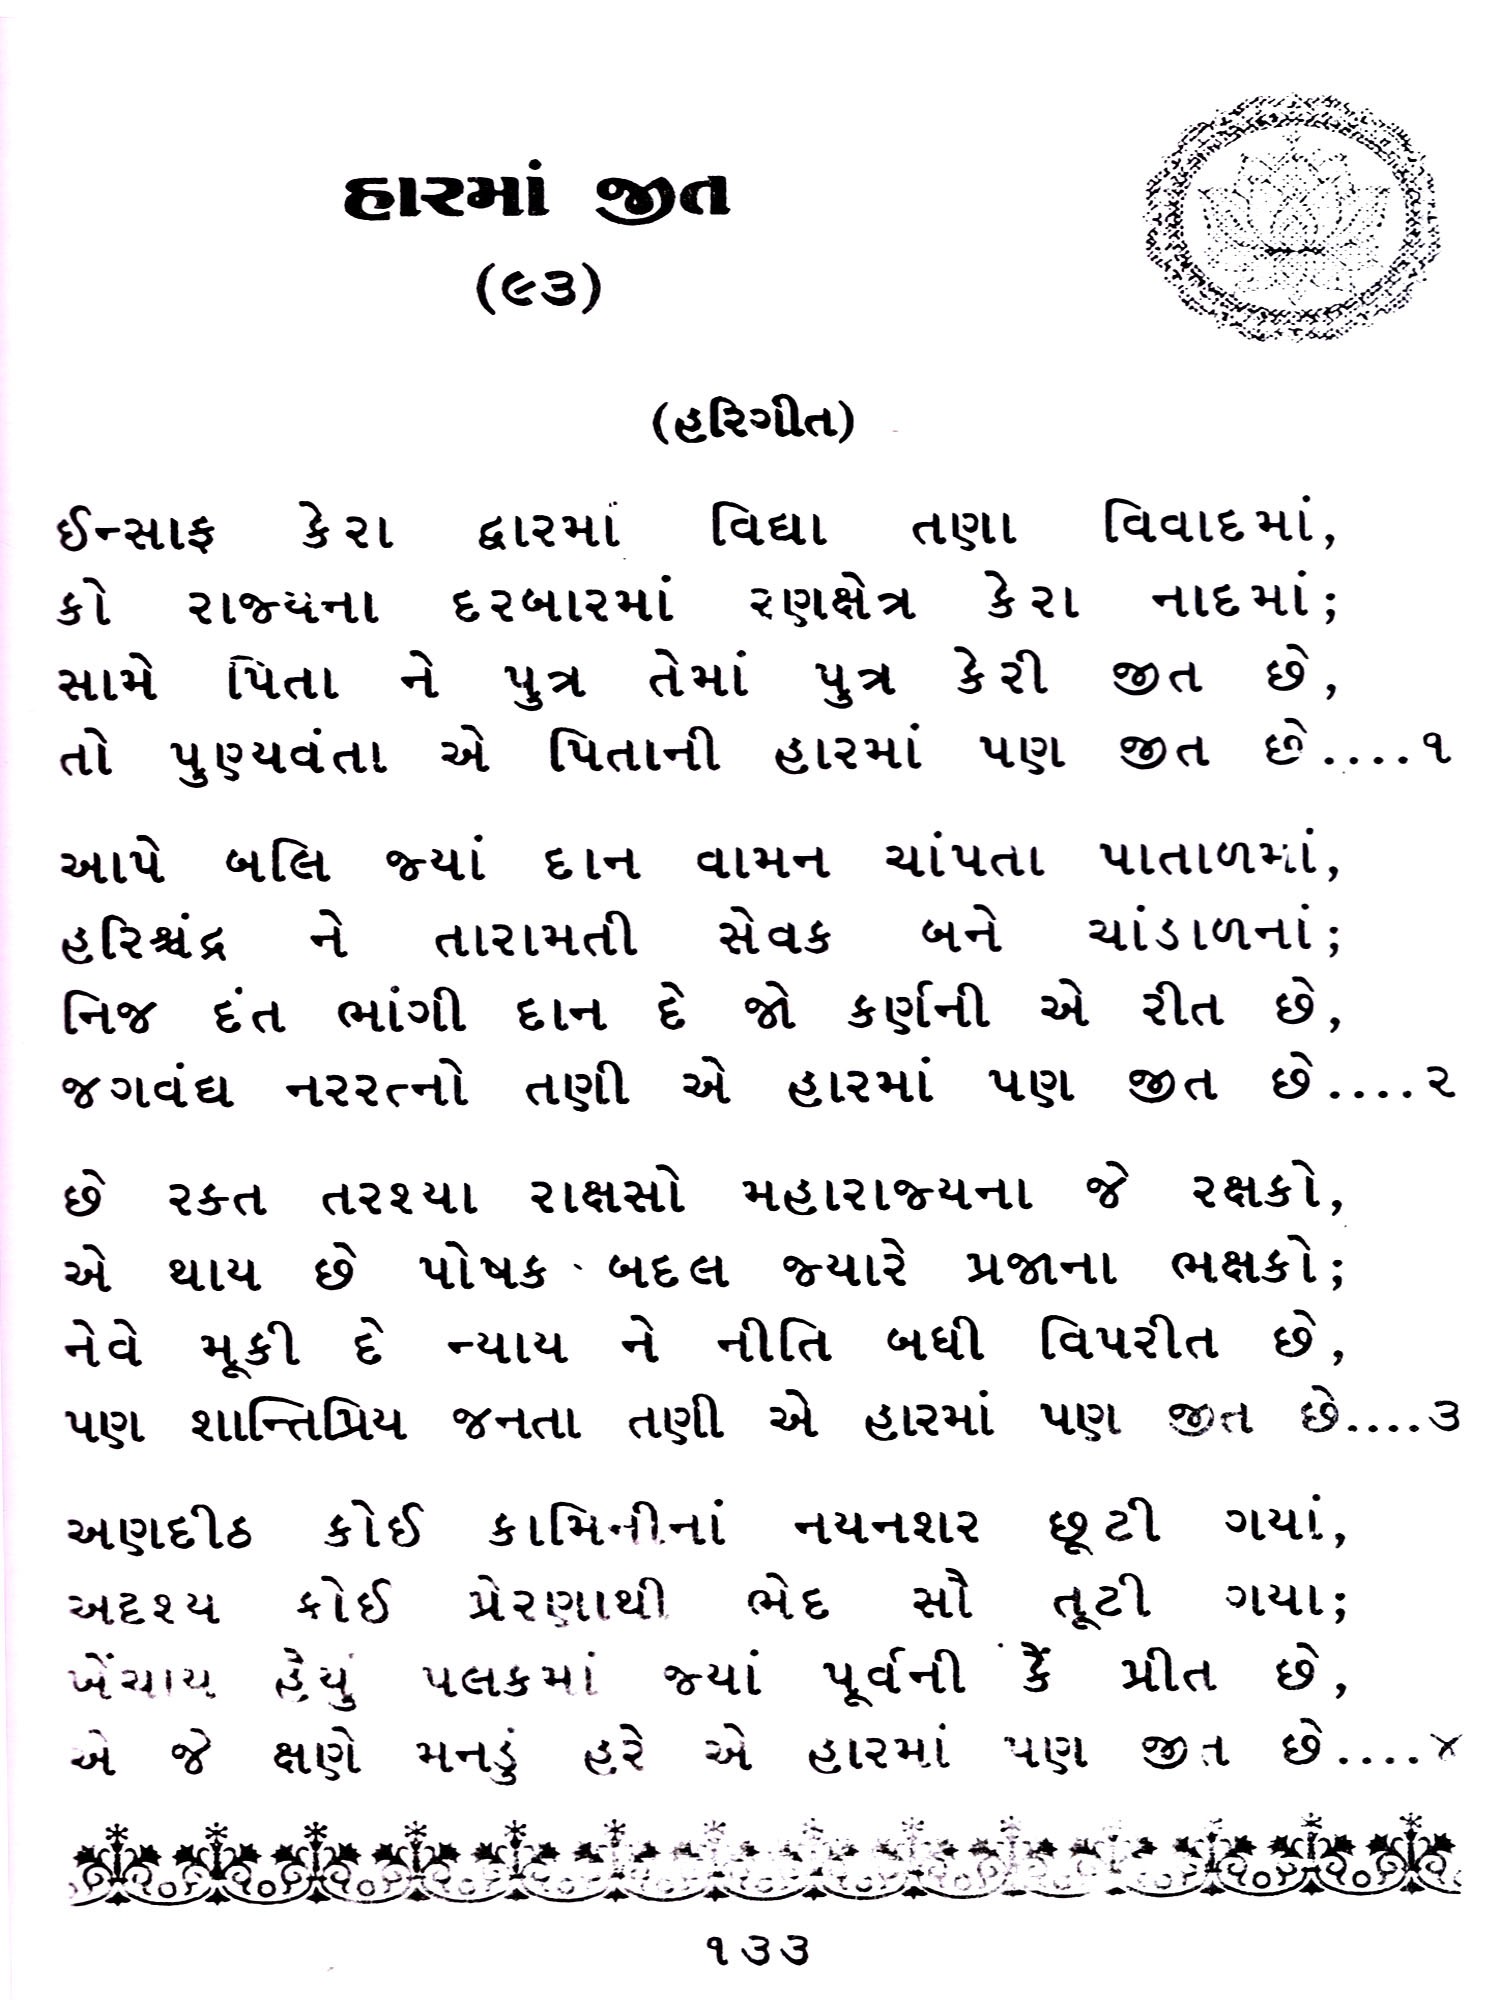 હારમાં જીત
(૯૩)
(હરિગીત)
ઈન્સાફ કેરા દ્વારમાં વિદ્યા તણા વિવાદમાં,
કો રાજ્યના દરબારમાં રણક્ષેત્ર કેરા નાદમાં;
સામે પિતા ને પુત્ર તેમાં પુત્ર કેરી જીત છે,
તો પુણ્યવંતા એ પિતાની હારમાં પણ જીત છે....૧
આપે બલિ જ્યાં દાન વામન ચાંપતા પાતાળમાં,
હરિશ્ચંદ્ર ને તારામતી સેવક બને ચાંડાળનાં;
નિજ દંત ભાંગી દાન દે જો કર્ણની એ રીત છે,
જગવંદ્ય નરરત્નો તણી એ હારમાં પણ જીત છે....૨
છે રક્ત તરશ્યા રાક્ષસો મહારાજ્યના જે રક્ષકો,
એ થાય છે પોષક બદલ જ્યારે પ્રજાના ભક્ષકો;
નેવે મૂકી દે ન્યાય ને નીતિ બધી વિપરીત છે,
પણ શાન્તિપ્રિય જનતા તણી એ હારમાં પણ જીત છે....૩
અણદીઠ કોઈ કામિનીનાં નયનશર છૂટી ગયાં,
અદૃશ્ય કોઈ પ્રેરણાથી ભેદ સૌ તૂટી ગયા;
ખેંચાય હૈયું પલકમાં જ્યાં પૂર્વની કૈં પ્રીત છે,
એ જે ક્ષણે મનડું હરે એ હારમાં પણ જીત છે....૪
૧૩૩